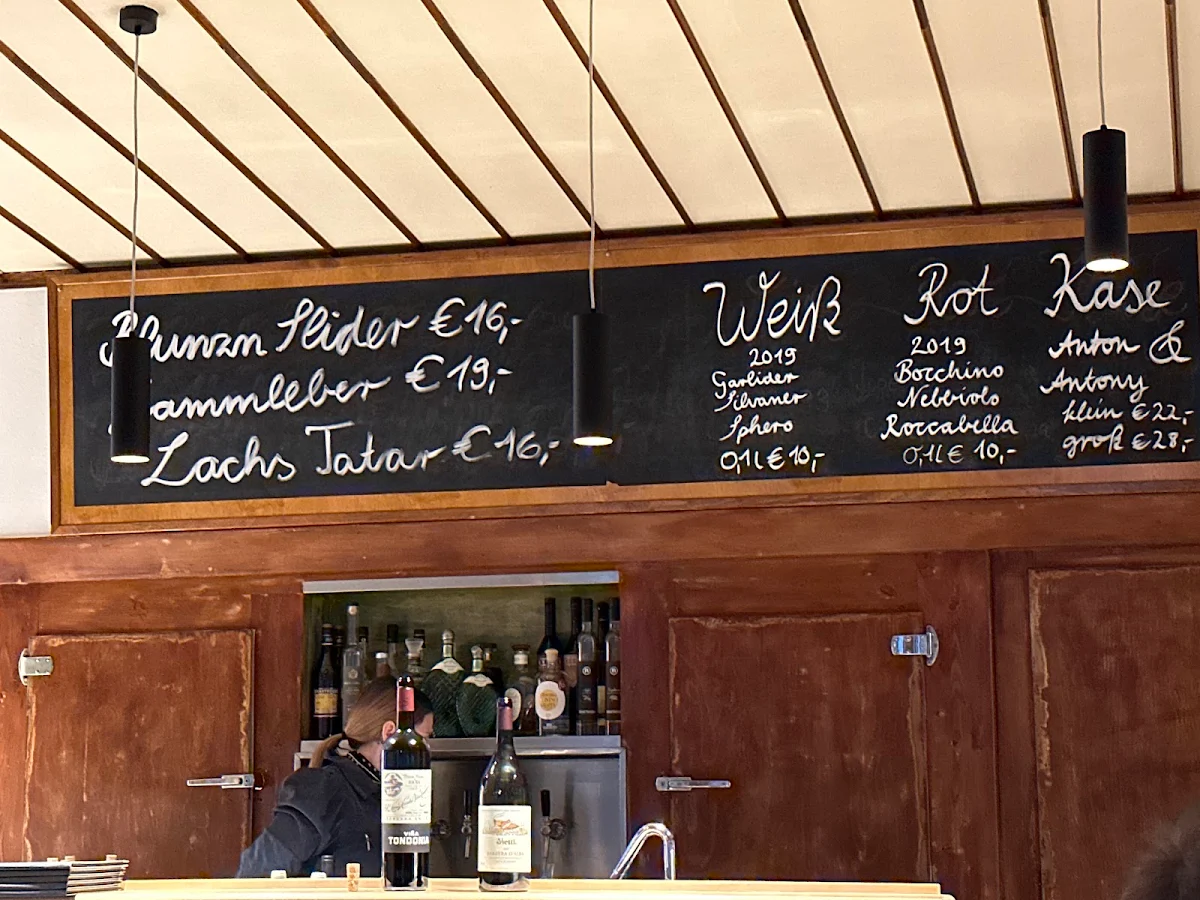 Blunzn Slider €16,-
Lammleber €19,-
Lachs Tatar €16,-
Weiß
2019
Garlider
Silvaner
Sphero
0,1l €10,-
Rot
2019
Bocchino
Nebbiolo
Roccabella
0,1l € 10,-
Käse
Anton &
Antony
klein €22,-
groß €28,-
VIÑA
TONDONIA